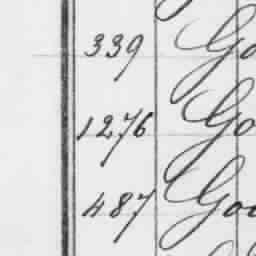 339 Go
1276 Go
487 Goo